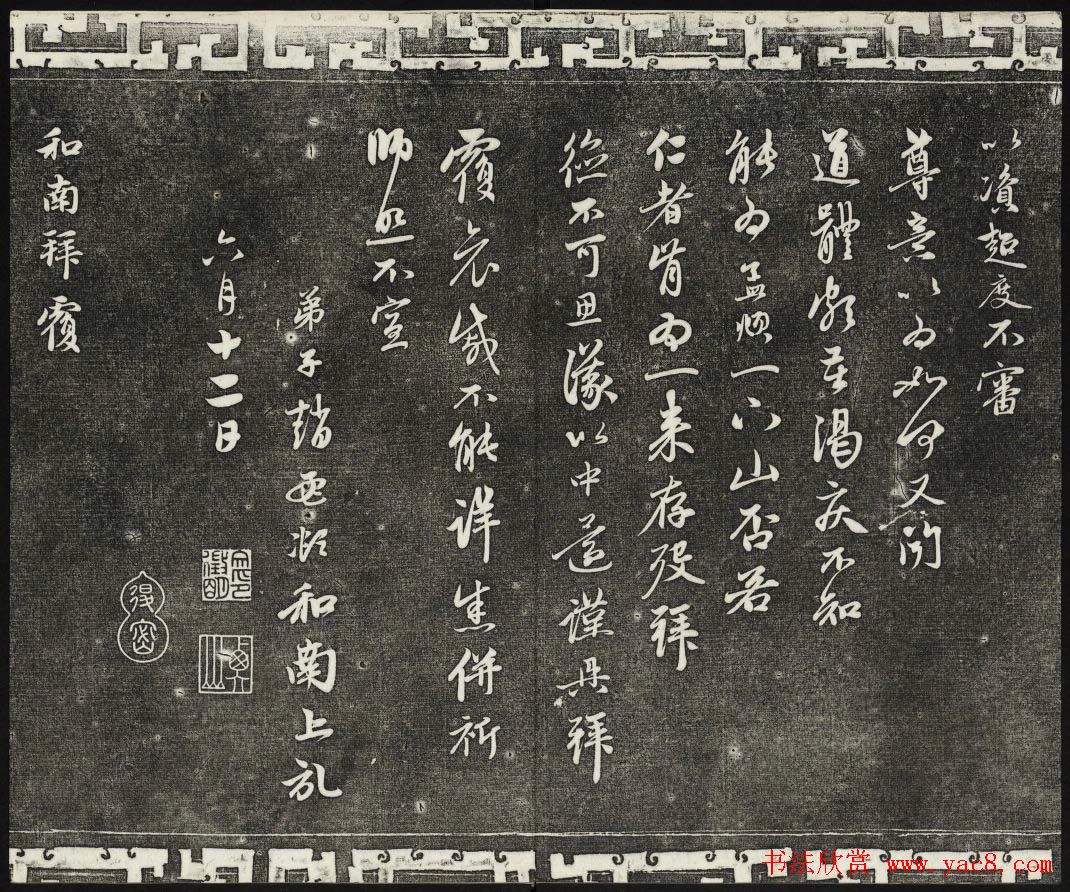 以資超度不審
尊意以為如何又聞
道體頗苦渴疾不知
能為孟頫一下山否若
仁者肯為一来存歿拜
德不可思議以中還謹具拜
覆哀戚不能詳悉併祈
師照不宣
弟子趙孟頫和南上
六月十二日
和南拜覆
书法欣赏 www.yac8.com